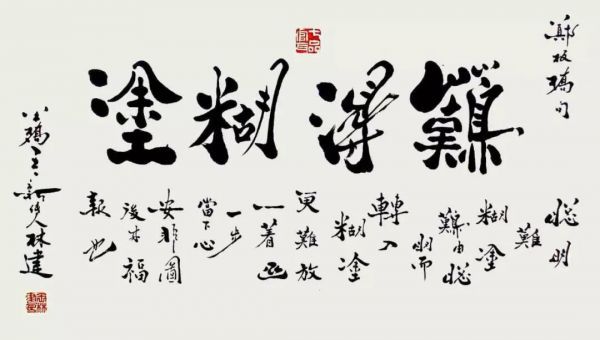 鄭板橋句
七品官耳
難得糊塗
聰明
難
糊塗
難由聰
明而
轉入
糊塗
更難放
一着退
一步
當下心
安非圖
後來福
報也
林建